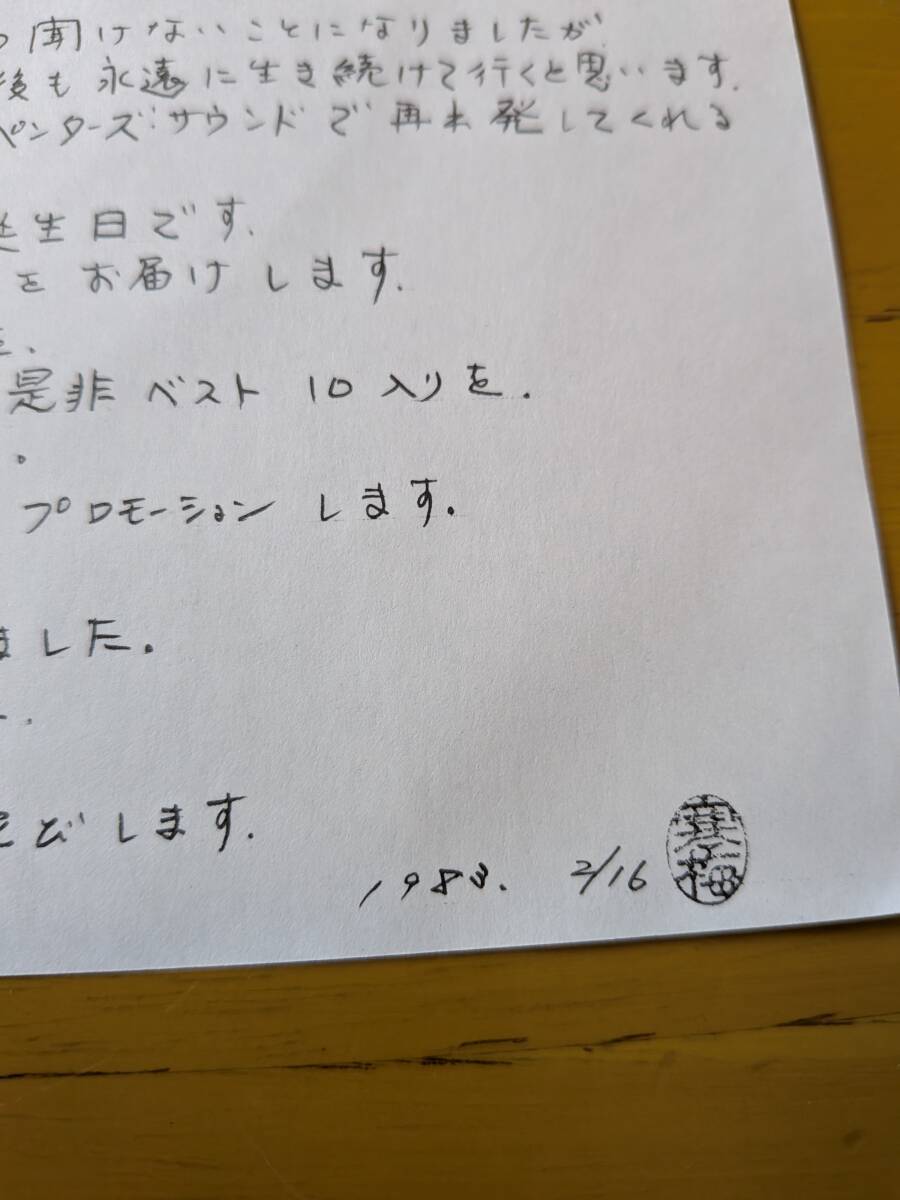 聞けないことになりましたが
後も永遠に生き続けて行くと思います.
ペンターズ・サウンドで再出発してくれる
生日です.
をお届けします.
是非ベスト10入りを.
プロモーションします.
ました.
びします.
1983. 2/16